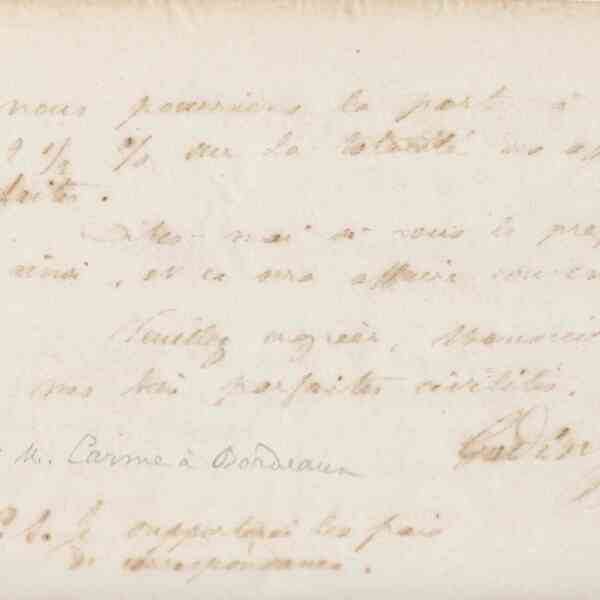 nous pourrions le port à
9 1/2 % sur la totalité
faites.
Dites-moi si vous le
ainsi, et ce sera affaire
Veuillez agréer, Monsieur
mes très parfaites civilités.
Godin
M. Carme à Bordeaux
P. S. Je supporterai les frais
de correspondance.